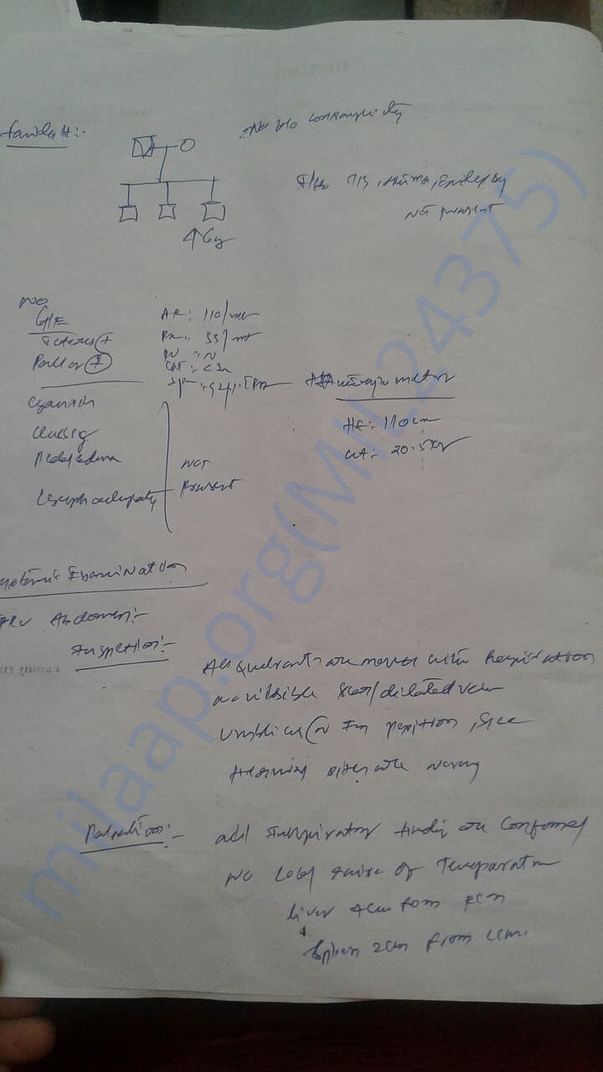 family H:-
No H/o consanguinity
F/H/o TB, Asthma, Epilepsy
not present
↑ 6y
O/E
G/E
Icterus +
Pallor +
Cyanosis
Clubbing
Pedal edema
Lymphadenopathy
not
Present
110/mt
RR: 33/mt
: N
CRT: < 3s
Anthropometry
Ht: 110cm
Wt: 20.5kg
Systemic Examination
Per Abdomen:-
Inspection:-
All quadrants are moves with Respiration
no visible scar/dilated vein
Umbilicus in position, size
Hernial sites are normal
Palpation:-
all Inspiratory findings are confirmed
No Local raise of Temperature
liver 4cm from RCM
Spleen 2cm from LCM.
milaap.org(MIL24375)